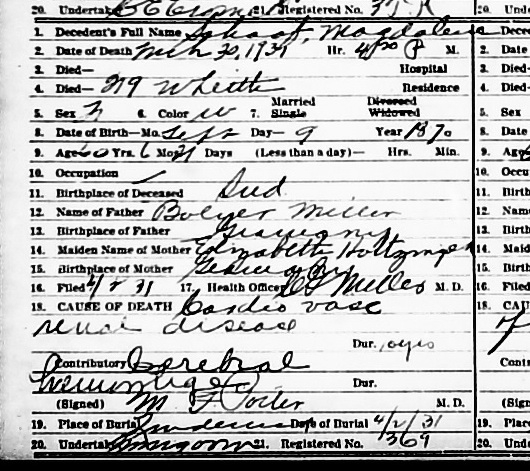 20. Undertak 21. Registered No. 20. Undert
1. Decedent's Full Name Schaaf, Magdalena 1. Deced
2. Date of Death Mch 30, 1931 Hr. 4:20 P M. 2. Date
3. Died— Hospital 3. Died-
4. Died— 219 Residence 4. Died-
5. Sex F 6. Color W 7. Married Single Divorced Widowed 5. Sex
8. Date of Birth—Mo. Sept Day— 9 Year 1870 8. Date
9. Age 60 Yrs. 6 Mo. 21 Days (Less than a day)— Hrs. Min. 9. Age
10. Occupation 10. Occup
11. Birthplace of Deceased Ind 11. Birth
12. Name of Father Miller 12. Name
13. Birthplace of Father Germany 13. Birth
14. Maiden Name of Mother Elizabeth 14. Maid
15. Birthplace of Mother Germany 15. Birth
16. Filed 4/2 31 17. Health Officer Miller M. D. 16. Filed
18. CAUSE OF DEATH Cardio vasc 18. CAUS
renal disease
Dur. 10 yrs
Contributory Cerebral Contr
hemorrhage Dur.
(Signed) M F Porter M. D. (Sign
19. Place of Burial Date of Burial 4/2/31 19. Place
20. Undertak 21. Registered No. 369 20. Under